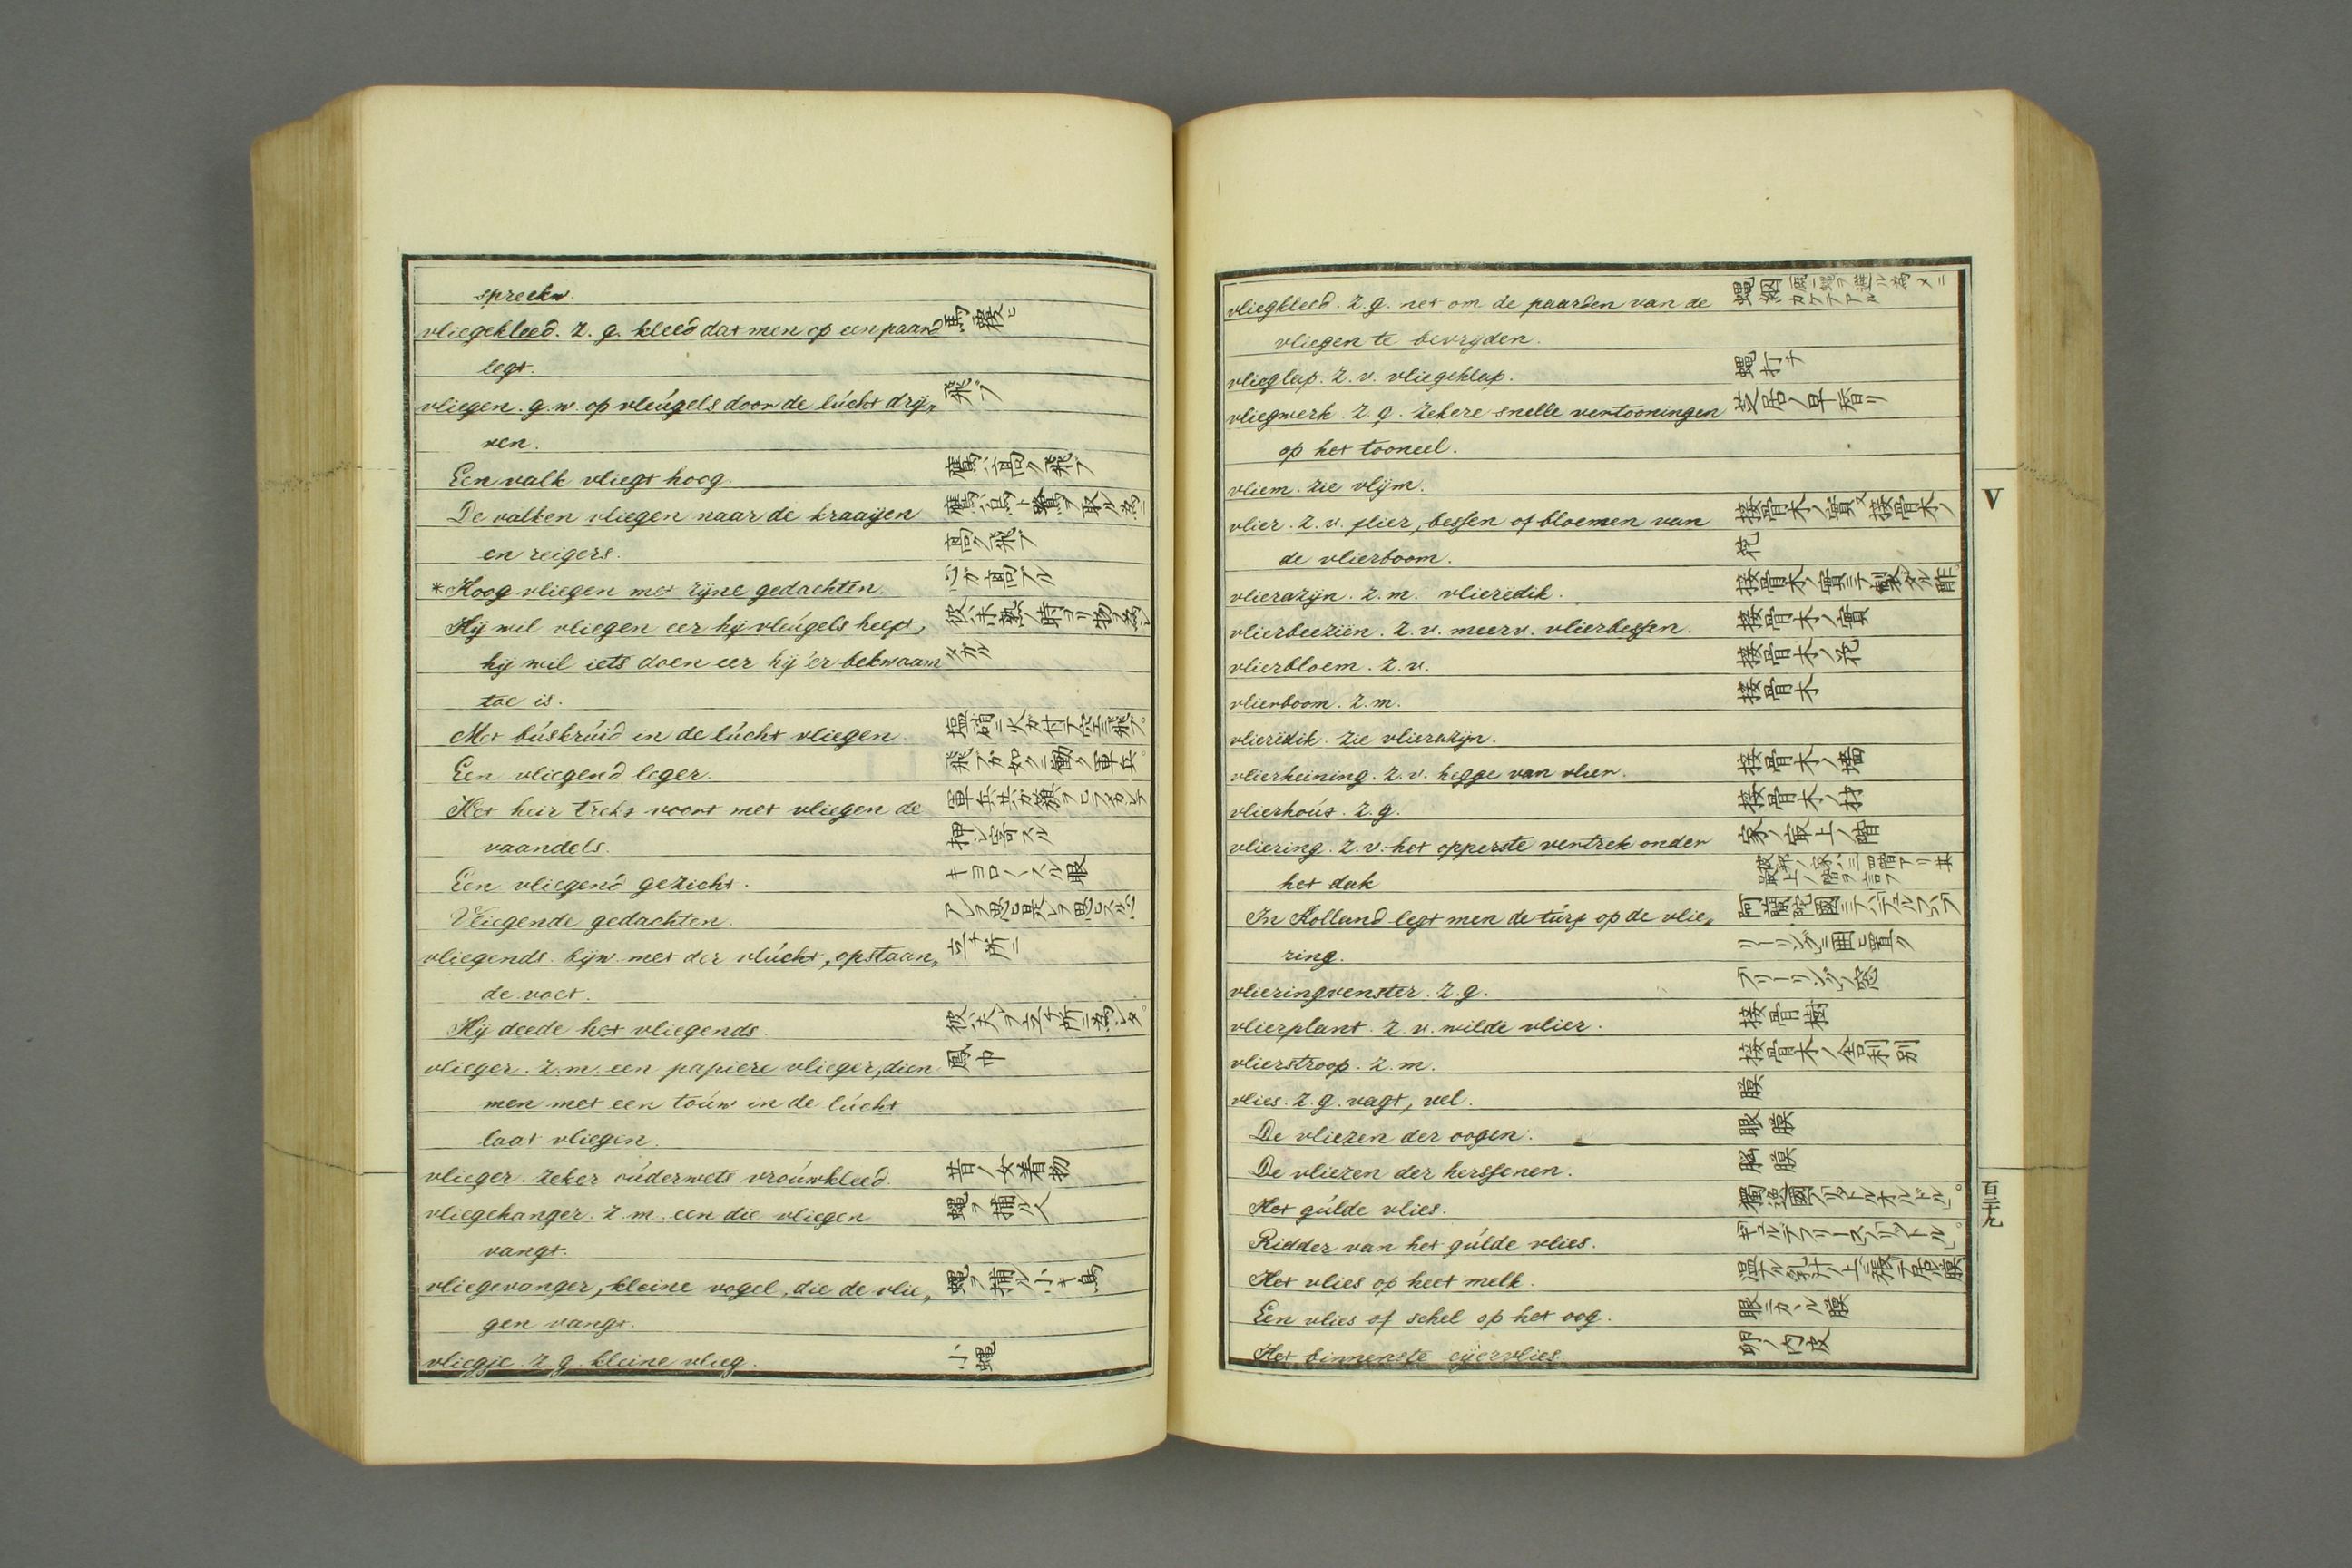 spreekw.
vliegekleed. z. g. kleed dat men op een paard 馬覆ヒ
legt.
vliegen. g. w. op vleúgels door de lúcht drij„ 飛ブ
ven.
Een valk vliegt hoog. 鷹ハ高ク飛ブ
De valken vliegen naar de kraaijen 鷹ハ烏ト鷺ヲ取ル為ニ
en reigers. 高ク飛ブ
*Hoog vliegen met zijne gedachten. 心ガ高ブル
Hij wil vliegen eer hij vleúgels heeft, 彼ハ未熟ノ時ヨリ物ヲ為シ
hij wil iets doen eer hij 'er bekwaam タガル
toe is.
Met búskrúid in de lúcht vliegen 塩硝ニ火ガ付テ空ニ飛ブ。
Een vliegend leger. 飛ブガ如クニ働ク軍兵。
Het heir trekt voort met vliegen de 軍兵共ガ旗ヲヒラカシテ
vaandels. 押シ寄スル
Een vliegend gezicht. キヨロ〱スル眼
Vliegende gedachten. アレヲ思ヒ是レヲ思ヒスル心
vliegends. bijw. met der vlúcht, opstaan„ 立チ所ニ
de voet.
Hij deede het vliegends. 彼ハ夫レヲ立チ所ニ為シタ。
vlieger. z. m. een papiere vlieger, dien 凧巾
men met een toúw in de lúcht
laat vliegen.
vlieger. zeker oúderwets vroúwkleed. 昔ノ女ノ着物
vliegehanger. z. m. een die vliegen 蠅ヲ捕ル人
vangt.
vliegevanger, kleine vogel, die de vlie„ 蠅ヲ捕ル小キ鳥
gen vangt.
vliegje. z. g. kleine vlieg. 小蠅
vliegkleed. z. g. net om de paarden van de 蠅網 馬ニ蠅ヲ避ル為メニカケテアル
vliegen te bevryden.
vlieglap. z. v. vliegeklap. 蠅打チ
vliegwerk z. g. zekere snelle vertooningen 芝居ノ早替リ
op het tooneel.
vliem. zie vlijm.
vlier. z. v. flier, bessen of bloemen van 接骨木ノ實又接骨木ノ
de vlierboom. 花
vlierazijn. z. m. vlieredik. 接骨木ノ實ニテ製シタル酢。
vlierbeeziën. z. v. meerv. vlierbessen. 接骨木ノ實
vlierbloem. z. v. 接骨木ノ花
vlierboom. z. m. 接骨木
vlieredik. zie vlierazijn.
vlierheining. z. v. hegge van vlier. 接骨木ノ墻
vlierhoút. z. g. 接骨木ノ材
vliering. z. v. het opperste vertrek onder 家ノ最上ノ階
het dak 彼邦ノ家ハ三四階アリ其最上ノ階ヲ言フ
In Holland legt men de túrf op de vlie„ 阿蘭陀國ニテハテユルフヲフ
ring. リーリングニ囲ヒ置ク
vlieringvenster. z. g. フリーリングノ窓
vlierplant. z. v. wilde vlier. 接骨樹
vlierstroop. z. m. 接骨木ノ舎利別
vlies. z. g. vagt, vel. 膜
De vliezen der oogen. 眼膜
De vliezen der herssenen. 脳膜
Het gúlde vlies.
Ridder van het gúlde vlies.
Het vlies op heet melk. 温ナル乳汁ノ上ニ張テ居ル膜
Een vlies of schel op het oog. 眼ニカヽル膜
Het binnenste eijervlies. 卵ノ内皮
V
百三十九